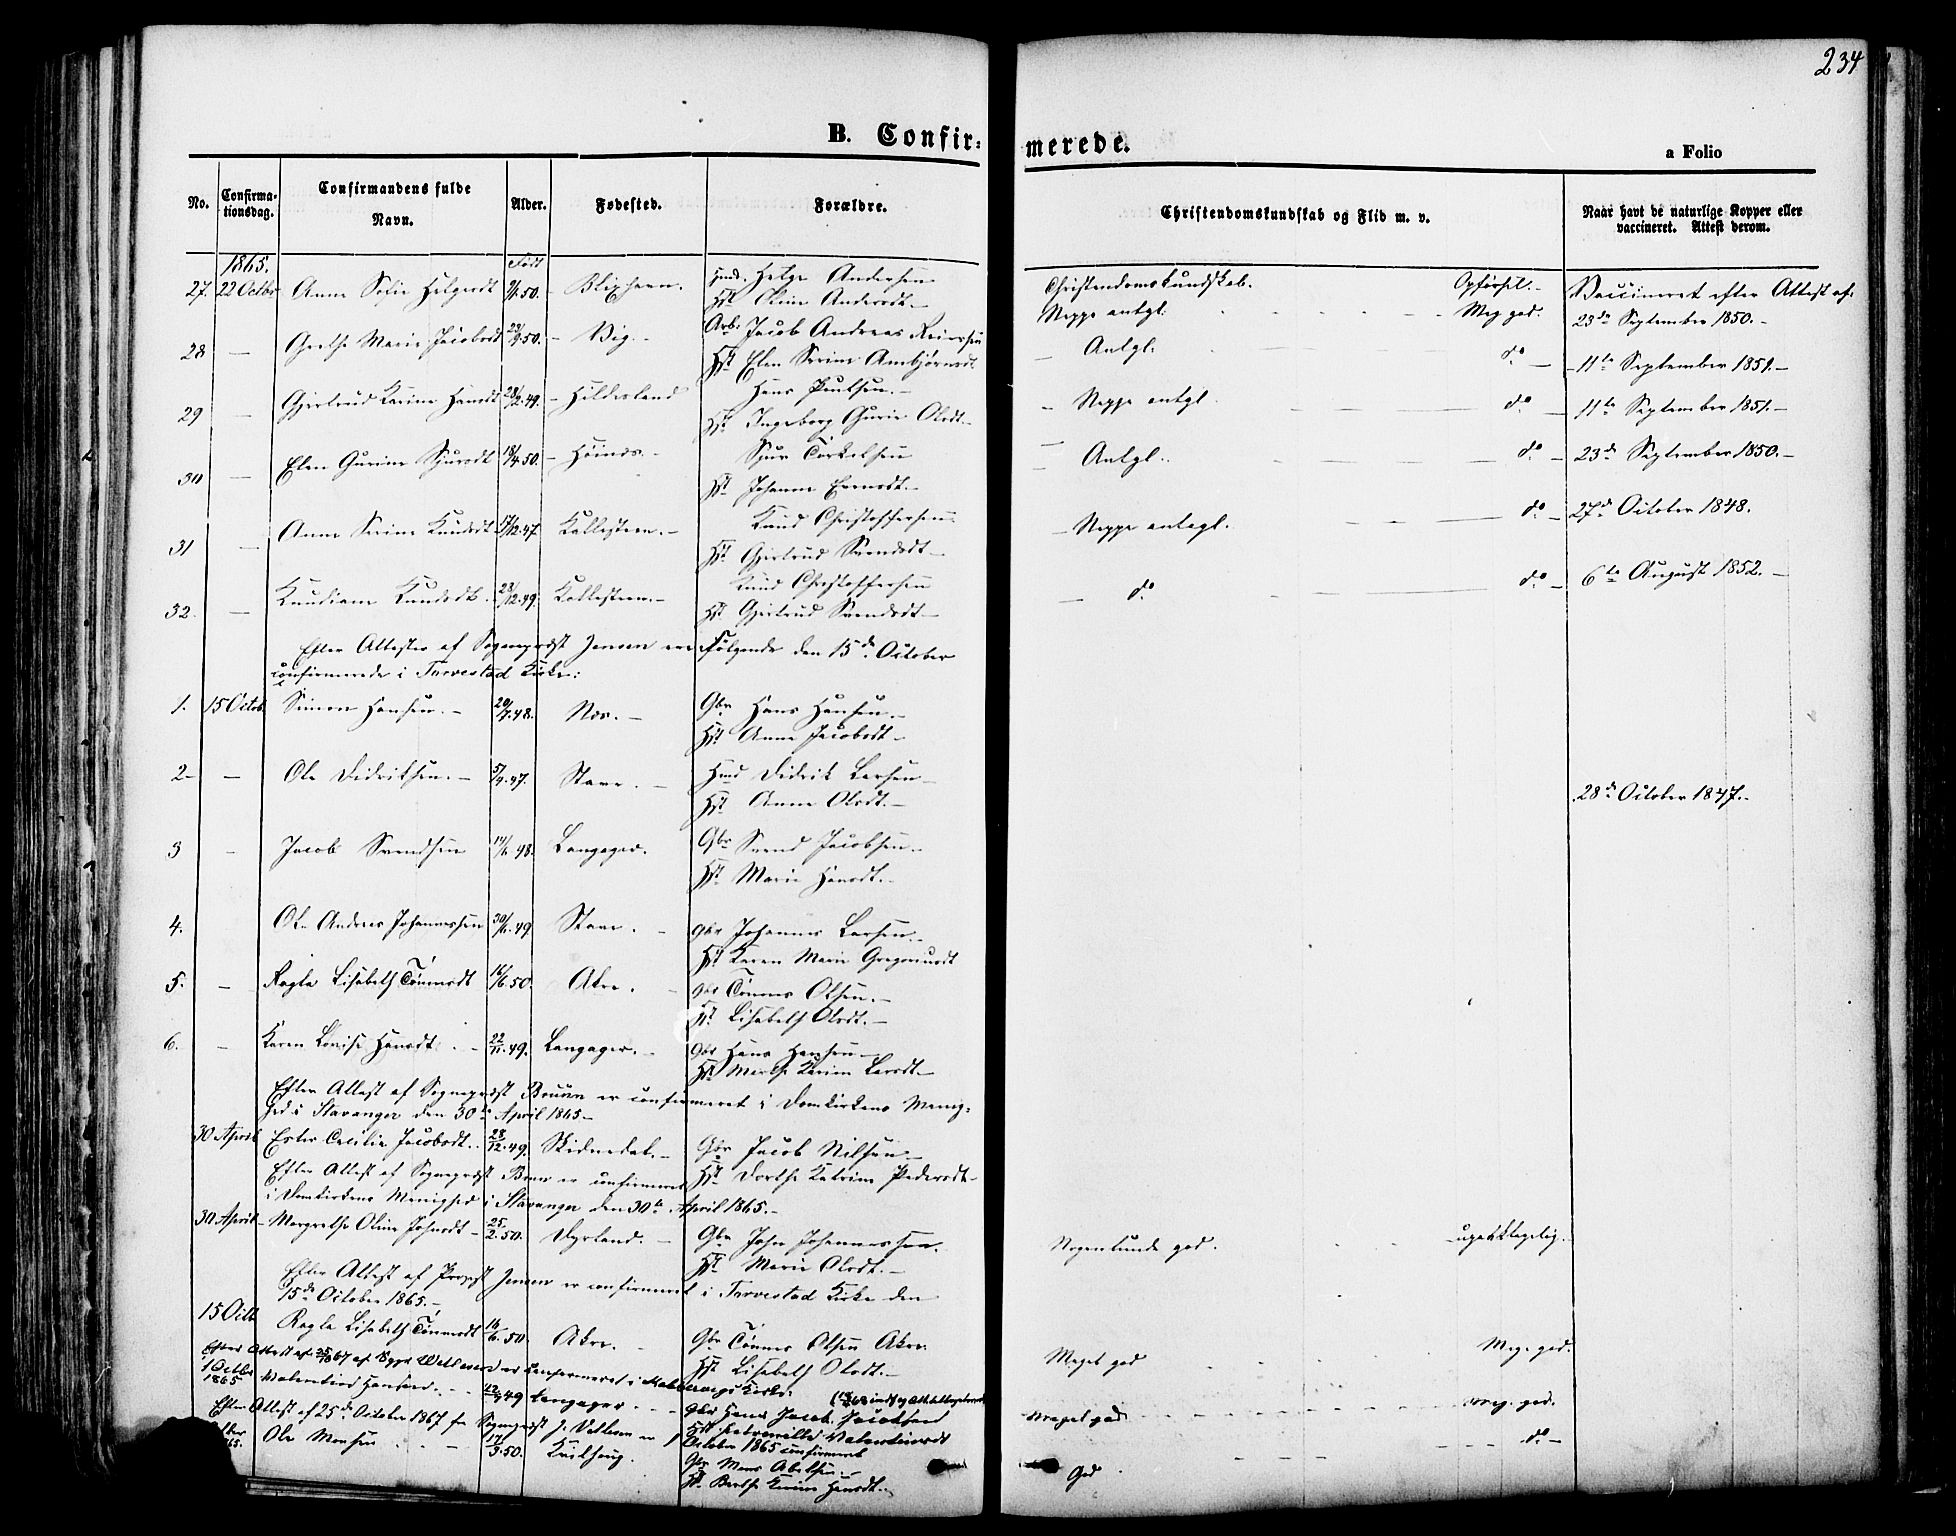 234
B. Confir-
merede.
a Folio
No.
Confirma-
tionsdag.
Confirmandens fulde
Navn.
Alder.
Fødested.
Forældre.
Christendomskundskab og Flid m. v.
Naar havt de naturlige Kopper eller
vaccineret. Attest derom.
1865.
Født
27. 22 Octbr Anne Helgesdt 50. Helge Andersen
Hst Oline Andersdt.
Christendomskundskab. Opførsel.
Neppe antgl. Meg god.
Vaccineret efter Attest af
23de September 1850.
28 — Grethe Marie Jacobsdt 29/9.50. Vig. Arb. Jacob Andreas Reiersen
Hst Elen Serine
Antgl. do — 11te September 1851.
29 — Gjertrud Karine Hansdt 28/2.49. Hilderland Hans Poulsen.
Hst Ingeborg Gurie Olsdt.
Neppe antgl. do — 11te September 1851.
30 — Elen Gurine Sjursdt 18/4.50. Høinæs. Sjur Torkelsen
Hst Johanne
Antgl. do — 23de September 1850.
31 — Anne Serine Knudsdt 17/12.47. Kallesteen. Knud Christoffersen
Hst Gjertrud Svendsdt.
Neppe antagl. do — 27de October 1848.
32. — Knudiane Knudsdt. 23/12.49. Kallesteen. Knud Christoffersen
Hst Gjertrud Svendsdt
do do — 6te August 1852.
Efter Attester af Sogneprest Jensen ere Følgende den 15de October
confirmerede i Torvestad Kirke:
1. 15 Octob. Simon Hansen. 20/7.48. Næs. Gbr Hans Hansen.
Hst Anne Jacobsdt
2 — Ole Didriksen. 5/4.47. Stave. Hmd Didrik Larsen
Hst Anne Olsdt.
28de October 1847.
3 — Jacob Svendsen 48. Langager. Gbr Svend Jacobsen.
Hst Marie Hansdt.
4. Ole Andreas Johannessen 49 Stave. Gbr Johannes Larsen.
Hst Karen Marie Gregoriusdt
5. — Ragla Lisabeth Tønnesdt 16/6.50. Akre. Gbr Tønnes Olsen.
Hst Lisabeth Olsdt.
6. — Karen Lovise Hansdt. 22/11.49. Langager. Gbr Hans Hansen
Hst Marthe Karine Larsdt.
Efter Attest af Sogneprest Bruun er confirmeret i Domkirkens Menig-
hed i Stavanger den 30te April 1865.
30 April Ester Cecilie Jacobsdt. 28/12.49. Skidnedal. Gbr Jacob Nilsen.
Hst Dorthe Katrine Pedersdt.
Efter Attest af Sogneprest Bruun er confirmeret
i Domkirkens Menighed i Stavanger den 30te April 1865.
30 April Margrethe Oline Johnsdt 25/2.50. Dyrland. Gbr John Johannessen.
Hst Marie Olsdt.
Nogenlunde god. upaaklagelig.
Efter Attest af Provst Jensen er confirmeret i Torvestad Kirke den
15de October 1865.
15 Octb Ragla Lisabeth Tønnesdt 16/6.50. Akre. Gbr Tønnes Olsen Akre.
Hst Lisabeth Olsdt.
Meget god Meget god.
Efter Attest af 25/10 67 af Sgpr Vetlesen er confirmeret i Kirke.
1 Octbr
1865 Valentine Hansen. 22/ 49 Langager. Gbr Hans Jacob Jacobsen
Hst Valentinsdt
Meget god. meg. god.
Efter Attest af 25de October 1867 fra Sogneprest J. Vetlesen er 1
October 1865 confirmeret
Ole Monsen 17/3.50. Gbr Mons Abelsen.
Hst Berthe Karine Hansdt.
God do